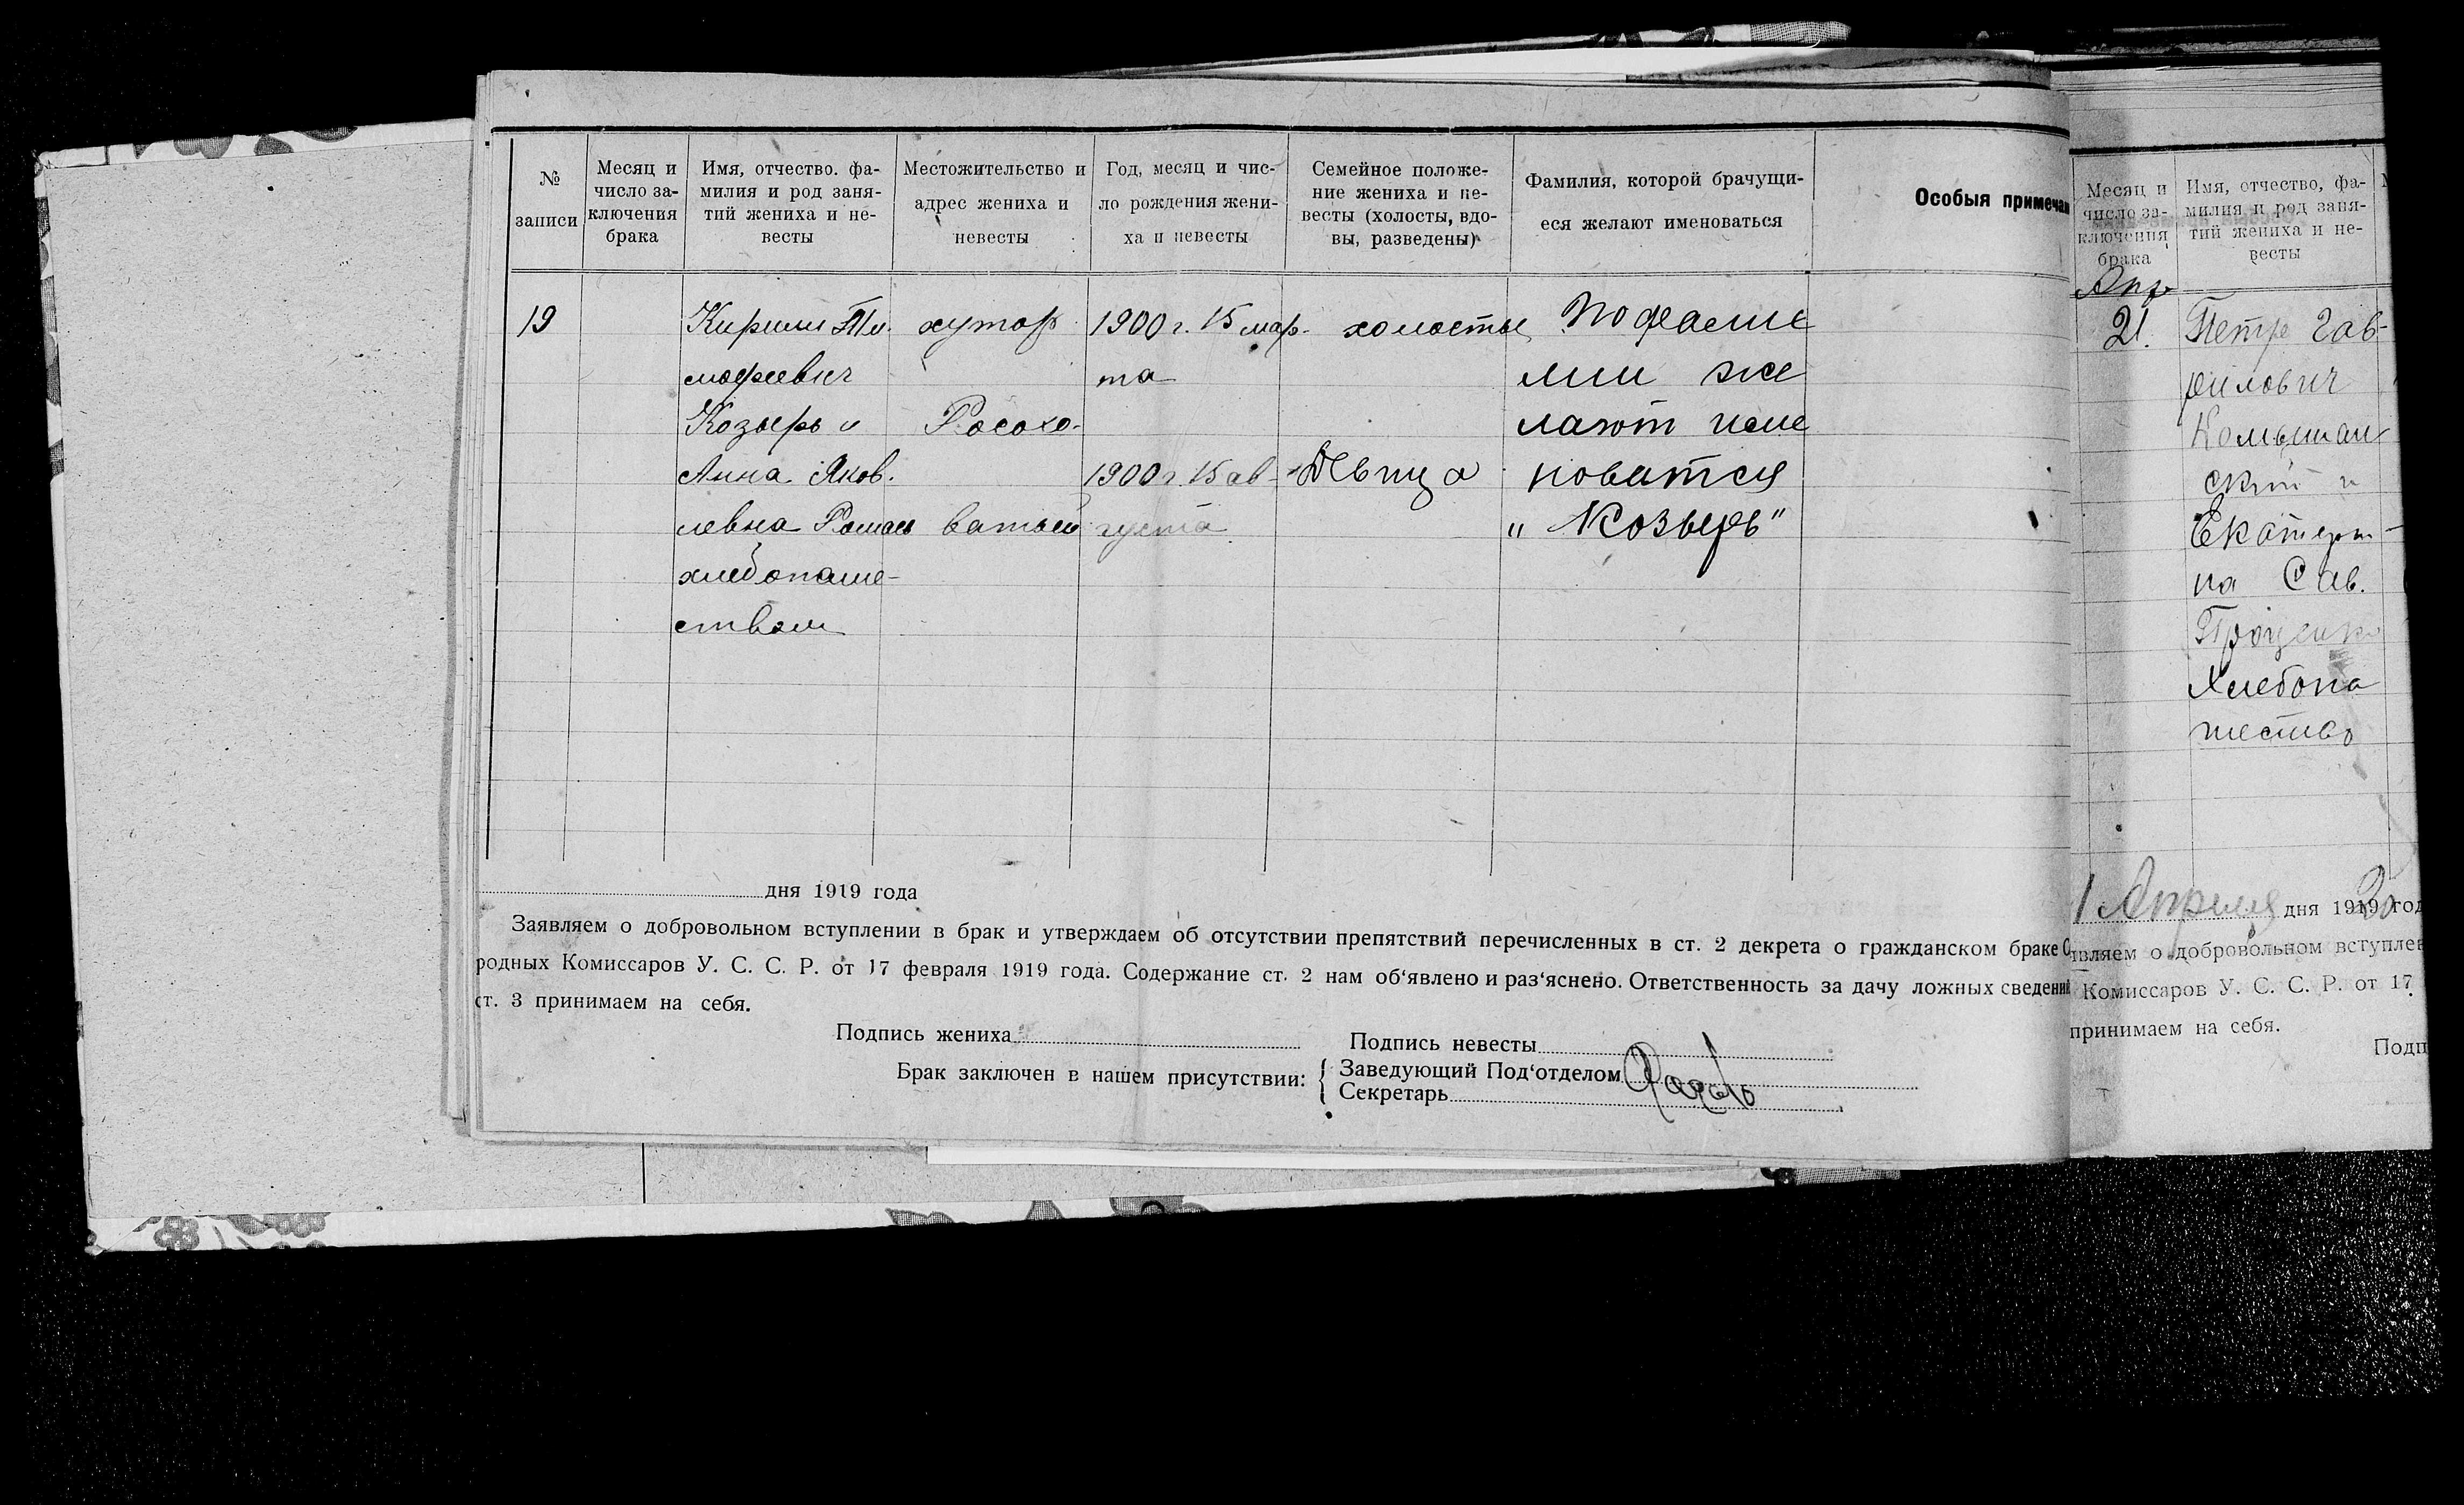 № записи
Месяц и число заключения брака
Имя, отчество. фа-
милия и род заня-
тий жениха и не-
весты
Местожительство и
адрес жениха и
невесты
Год, месяц и чис-
ло рождения жени-
ха и невесты
Семейное положе-
ние жениха и не-
весты (холосты, вдо-
вы, разведены)
Фамилия, которой брачущи-
еся желают именоваться
Особыя примечан
19
Кирилл Ти.
мофеевич
Козырь и
Анна Яков.
левна
хлебопаше-
ством
хутор
Росохо-
ватый
1900 г. 15 мар.
та
1900 г. 15 ав-
густа
холостые
Девица
По фами
лии же
лают име
новатся
„Козырь"
дня 1919 года
Заявляем о добровольном вступлении в брак и утверждаем об отсутствии препятствий перечисленных в ст. 2 декрета о гражданском браке С
родных Комиссаров У. С. С. Р. от 17 февраля 1919 года. Содержание ст. 2 нам об‘явлено и раз‘яснено. Ответственность за дачу ложных сведений
ст. 3 принимаем на себя.
Подпись жениха
Подпись невесты
Брак заключен в нашем присутствии:
Заведующий Под‘отделом
Секретарь
Месяц и
число за-
ключения
брака
Имя, отчество, фа-
милия и род заня-
тий жениха и не-
весты
Апр
21.
Петр Гав-
рилович
ский и
Екатери-
на Сав.
Проценко
Хлебопа
шество
1 Апреля дня 1919 год
вляем о добровольном вступлен
Комиссаров У. С. С. Р. от 17
принимаем на себя.
Подп